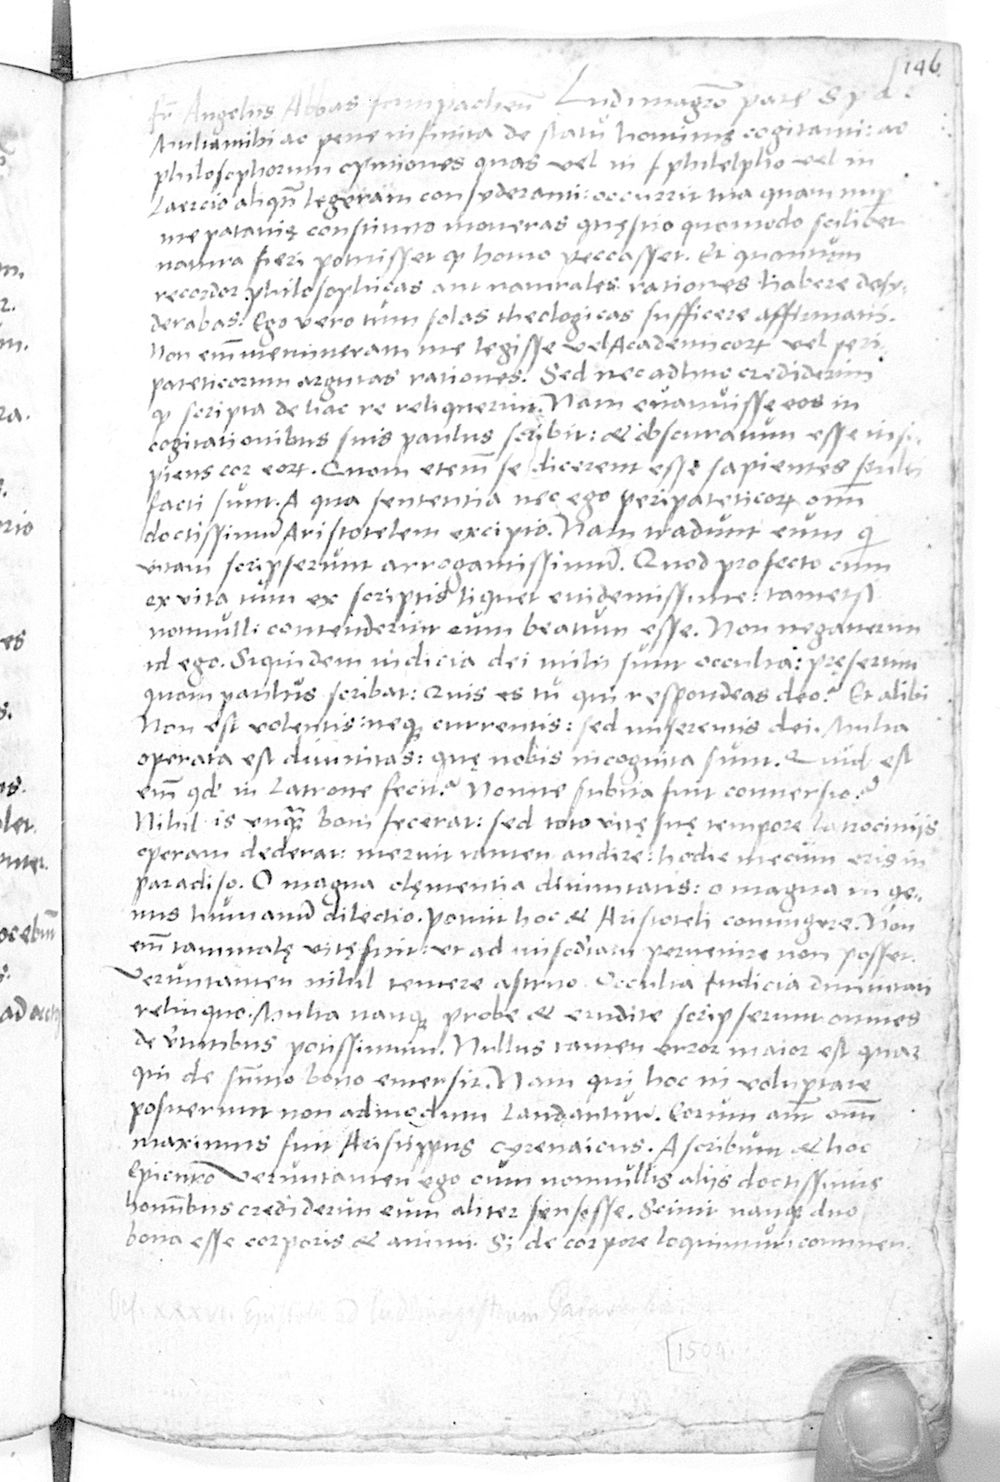 146
Fr Angelus Abbas formpachen̄ Ludimagr̄o patẽ S p d :
Multa mihi ac pene infinita de statu hominis cogitanti: ac
philosophorum opiniones quas vel in f philelpho vel in
Laercio aliqn̄ legeram consyderanti: occurrit tua quam nup̄
me patavię constituto moveras quęstio quomodo scilicet
natura fieri potuisset q homo peccasset. Et quantum
recordor philosophicas aut naturales rationes habere desy-
derabas: Ego vero tum solas theologicas sufficere affirmavi.
Non em̄ memineram me legisse vel Academicoꝝ vel peri-
pateticorum argutas rationes. Sed nec adhuc crediderim
q scripta de hac re reliquerint. Nam evanuisse eos in
cogitationibus suis paulus scribit: & obscuratum esse insi-
piens cor eoꝝ. Quom etem̄ se dicerent esse sapientes stulti
facti sunt. A qua sententia nec ego peripateticoꝝ om̄
doctissimū Aristotelem excipio. Nam tradunt eum q
vitam scripserunt arrogantissimū. Quod profecto cum
ex vita tum ex scriptis liquet evidentissime: tametsi
nonnulli contenderint eum beatum esse. Non negaverim
id ego. Siquidem iudicia dei mihi sunt occulta: pręsertim
quom paulus scribat: Quis es tu qui respondeas deo? Et alibi
Non est volentis neqꝫ currentis: sed miserentis dei. Multa
operata est divinitas: quę nobis incognita sunt. Quid est
em̄ qd in Latrone fecit? Nonne subita fuit conversio?
Nihil is unqꝫ boni fecerat: sed toto vitę suę tempore latrociniis
operam dederat: meruit tamen audire: hodie mecum eris in
paradiso. O magna clęmentia divinitatis: o magna in ge-
nus humanū dilectio. Potuit hoc & Aristoteli contingere. Non
em̄ tam malę vitę fuit: ut ad mīscdiam pervenire non posset.
Veruntamen nihil temere astruo. Occulta iudicia divinitati
relinquo. Multa nanqꝫ probe & erudite scripserunt omnes
de v̄tutibus potissimum. Nullus tamen error maior est quaꝫ
qui de sūmo bono emersit. Nam qui hoc in voluptate
posuerunt non admodum Laudantur. Eorum aut̄ om̄
maximus fuit Aristippus cyrenaicus. Ascribunt & hoc
Epicuro Veruntamen ego cum nonnullis aliis doctissimis
homībus crediderim eum aliter sensisse. Scivit nanqꝫ duo
bona esse corporis & animi. Si de corpore loquimur: commen-
[1504